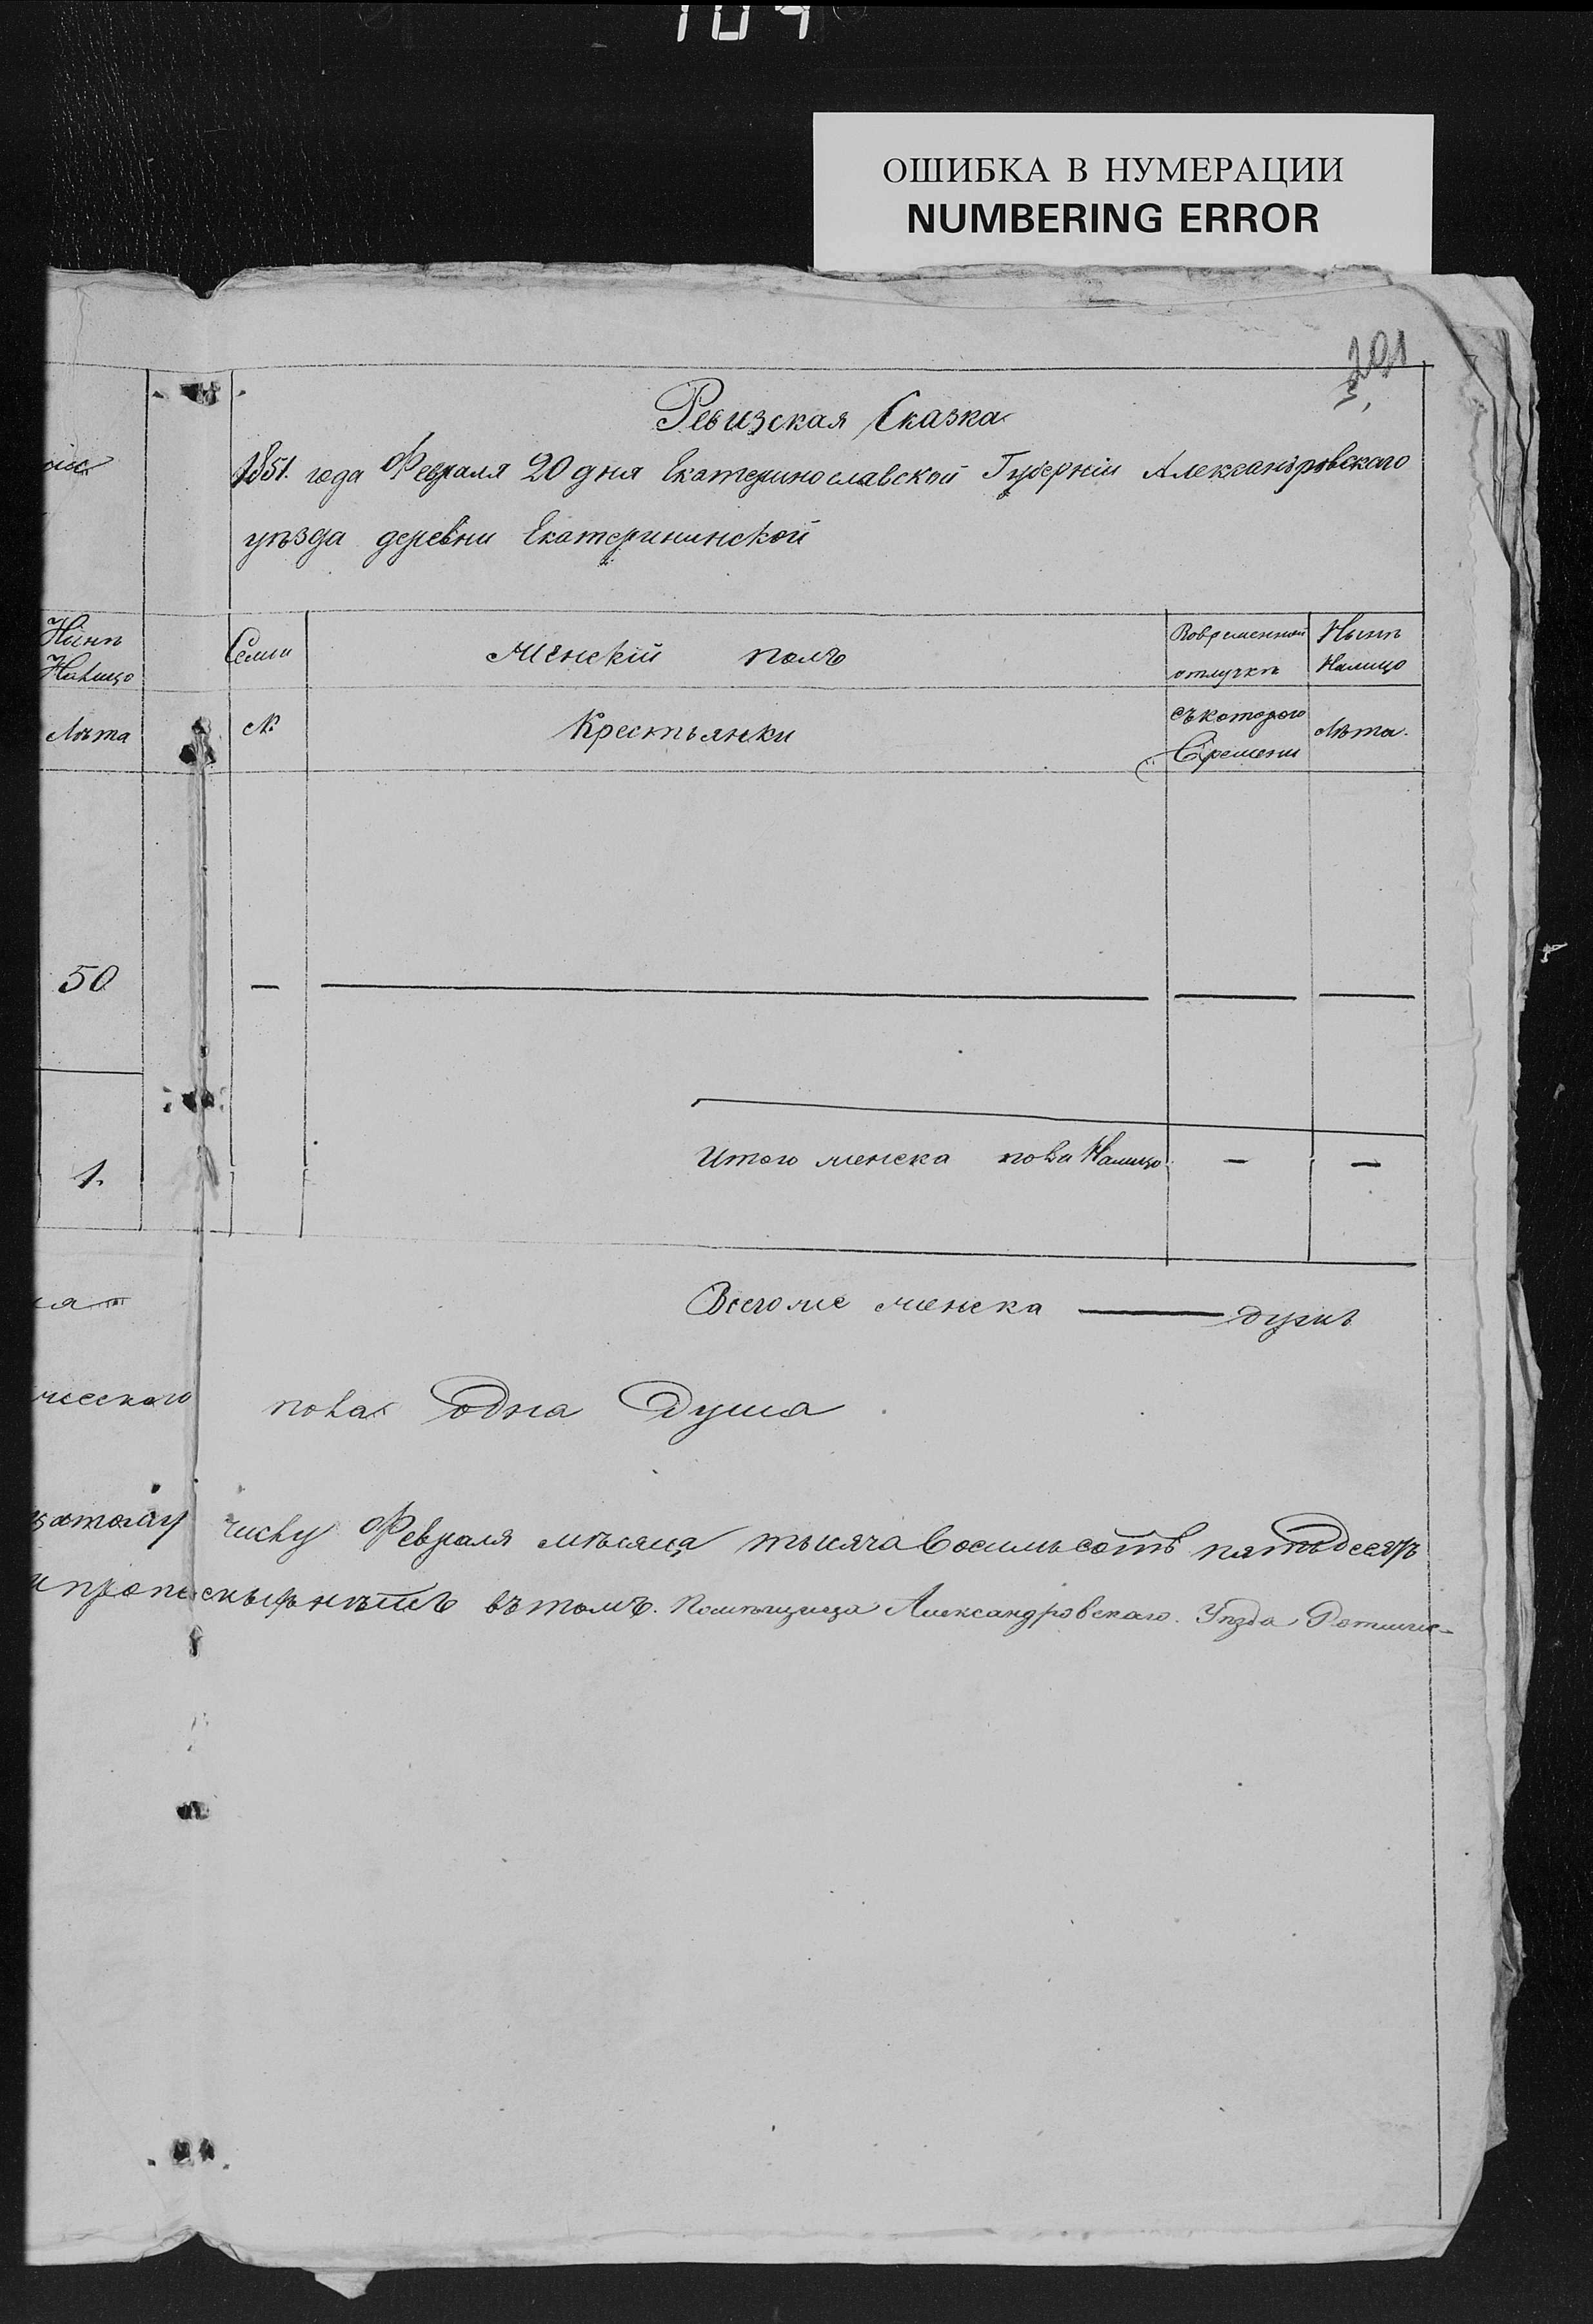 ОШИБКА В НУМЕРАЦИИ
NUMBERING ERROR
201
Ревизская Сказка
1851. года Февраля 20 дня Екатеринославской Губерніи Александровскаго
уѣзда деревни Екатерининской
Нынѣ
Налицо
Лѣта
Семьи
Женскій полъ
Вовременной
отлучкѣ
Нынѣ
Налицо
№
Крестьянки
съкотораго
Времени
Лѣта.
50
— — — —
1.
Итого женска пола Налицо — —
Всегоже женска — душъ
ческаго пола одна Душа
числу Февраля мѣсяца тысяча восимьсотъ пятьдесятъ
вътомъ. Помѣщица Александровскаго Уѣзда